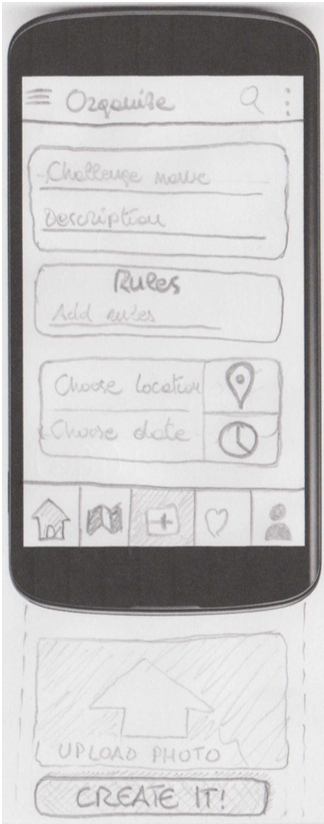 Organise
Challenge name
Description
Rules
Add rules
Choose location
Choose date
UPLOAD PHOTO
CREATE IT!